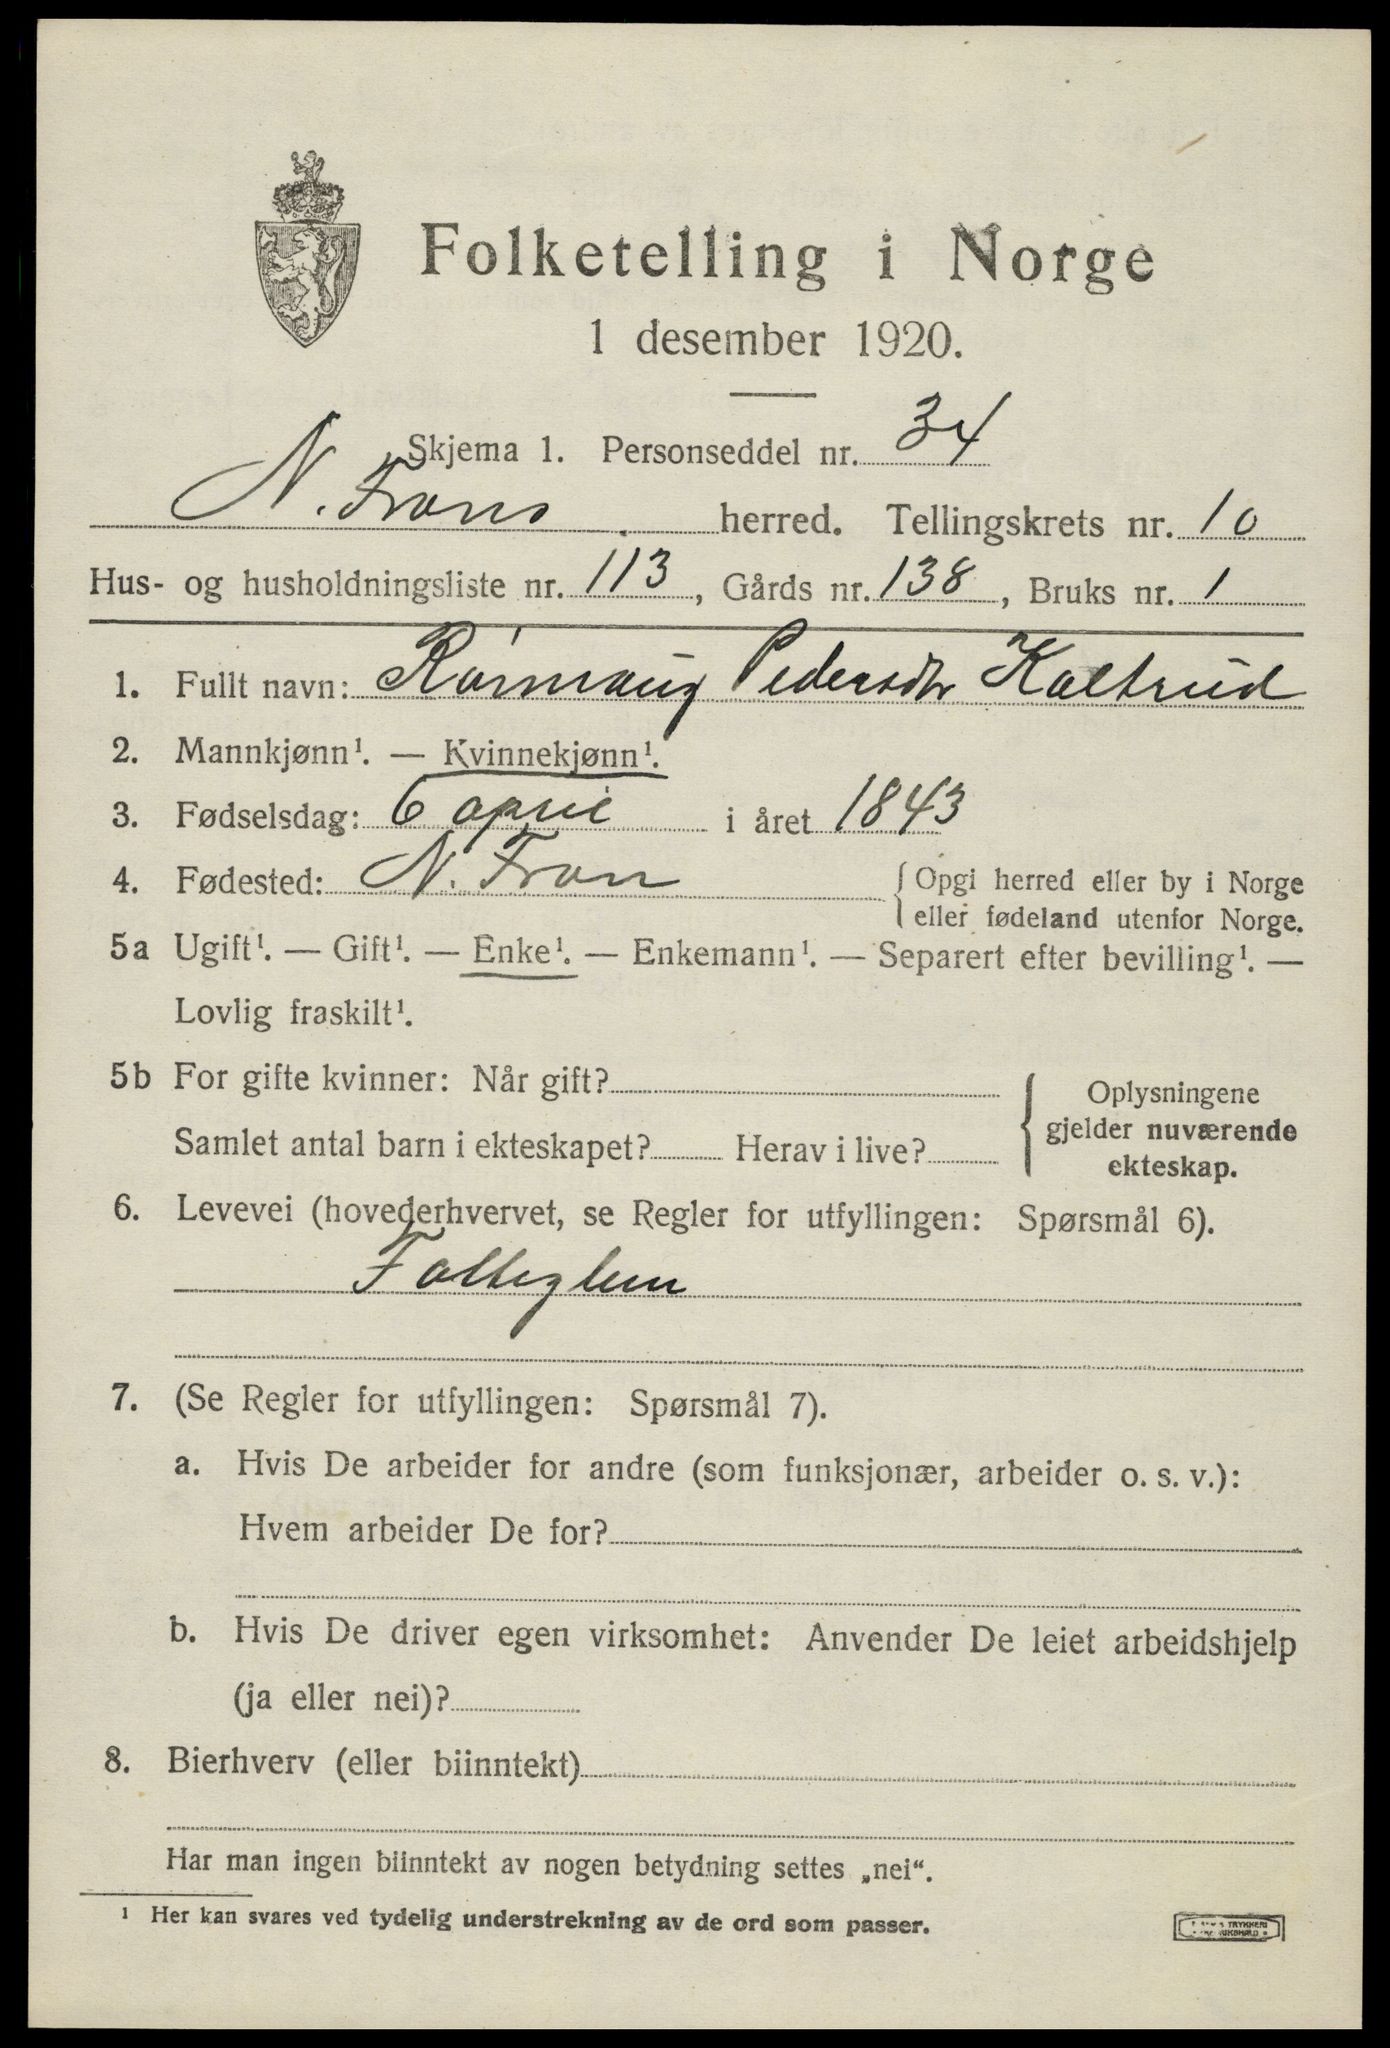 Folketelling i Norge
1 desember 1920.
Skjema 1. Personseddel nr. 34
N. Frons herred. Tellingskrets nr. 10
Hus- og husholdningsliste nr. 113, Gårds nr. 138, Bruks nr. 1
1. Fullt navn: Rönnaug Pedersdtr Kaltrud
2. Mannkjønn¹. — Kvinnekjønn¹.
3. Fødselsdag: 6 april i året 1843
4. Fødested: N. Fron { Opgi herred eller by i Norge
eller fødeland utenfor Norge.
5a Ugift¹. — Gift¹. — Enke¹. — Enkemann¹. — Separert efter bevilling¹. —
Lovlig fraskilt¹.
5b For gifte kvinner: Når gift?
Samlet antal barn i ekteskapet? Herav i live?
{ Oplysningene
gjelder nuværende
ekteskap.
6. Levevei (hovederhvervet, se Regler for utfyllingen: Spørsmål 6).
7. (Se Regler for utfyllingen: Spørsmål 7).
a. Hvis De arbeider for andre (som funksjonær, arbeider o. s. v.):
Hvem arbeider De for?
b. Hvis De driver egen virksomhet: Anvender De leiet arbeidshjelp
(ja eller nei)?
8. Bierhverv (eller biinntekt)
Har man ingen biinntekt av nogen betydning settes „nei“.
¹ Her kan svares ved tydelig understrekning av de ord som passer.
TRYKKERI